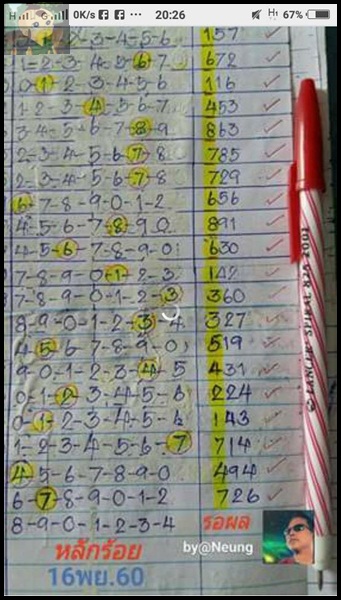 0K/s ... 20:26 67%
-3-4-5-6 157 ✓
1-2-3-4-5-6-7 672 ✓
0-1-2-3-4-5-6 116 ✓
1-2-3-4-5-6-7 453 ✓
3-4-5-6-7-8-9 863 ✓
2-3-4-5-6-7-8 785 ✓
2-3-4-5-6-7-8 729 ✓
6-7-8-9-0-1-2 656 ✓
4-5-6-7-8-9-0 891 ✓
4-5-6-7-8-9-0 630 ✓
7-8-9-0-1-2-3 142 ✓
7-8-9-0-1-2-3 360 ✓
8-9-0-1-2-3-4 327 ✓
4-5-6-7-8-9-0 519 ✓
9-0-1-2-3-4-5 431 ✓
0-1-2-3-4-5-6 224 ✓
0-1-2-3-4-5-6 143 ✓
1-2-3-4-5-6-7 714 ✓
4-5-6-7-8-9-0 494 ✓
6-7-8-9-0-1-2 726 ✓
8-9-0-1-2-3-4 รอผล
หลักร้อย by@Neung
16พย.60
LANCER SPIRAL 825